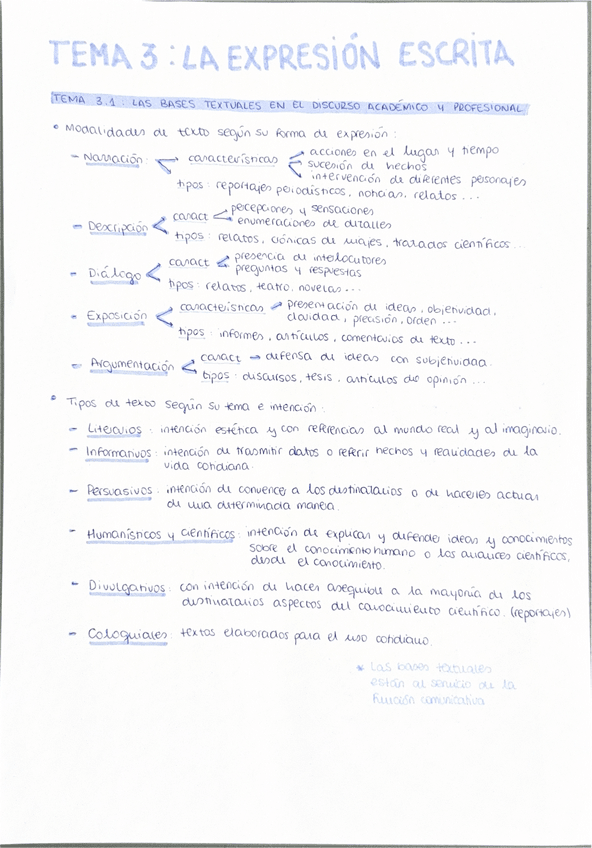 TEMA 3 : LA EXPRESIÓN ESCRITA
TEMA 3.1 : LAS BASES TEXTUALES EN EL DISCURSO ACADÉMICO Y PROFESIONAL
• Modalidades de texto según su forma de expresión :
- Narración : características acciones en el lugar y tiempo
sucesión de hechos
intervención de diferentes personajes
tipos : reportajes periodísticos, noticias, relatos ...
- Descripción caract percepciones y sensaciones
enumeraciones de detalles
tipos : relatos, crónicas de viajes, tratados científicos ...
- Diálogo caract presencia de interlocutores
preguntas y respuestas
tipos : relatos, teatro, novelas ...
- Exposición características → presentación de ideas, objetividad,
claridad, precisión, orden ...
tipos : informes, artículos, comentarios de texto ...
- Argumentación caract → defensa de ideas con subjetividad.
tipos : discursos, tesis, artículos de opinión ...
• Tipos de texto según su tema e intención :
- Literarios : intención estética y con referencias al mundo real y al imaginario.
- Informativos : intención de trasmitir datos o referir hechos y realidades de la
vida cotidiana.
- Persuasivos : intención de convencer a los destinatarios o de hacerles actuar
de una determinada manera.
- Humanísticos y científicos : intención de explicar y defender ideas y conocimientos
sobre el conocimiento humano o los avances científicos,
desde el conocimiento.
- Divulgativos : con intención de hacer asequible a la mayoría de los
destinatarios aspectos del conocimiento científico. (reportajes)
- Coloquiales : textos elaborados para el uso cotidiano.
* Las bases textuales
están al servicio de la
función comunicativa